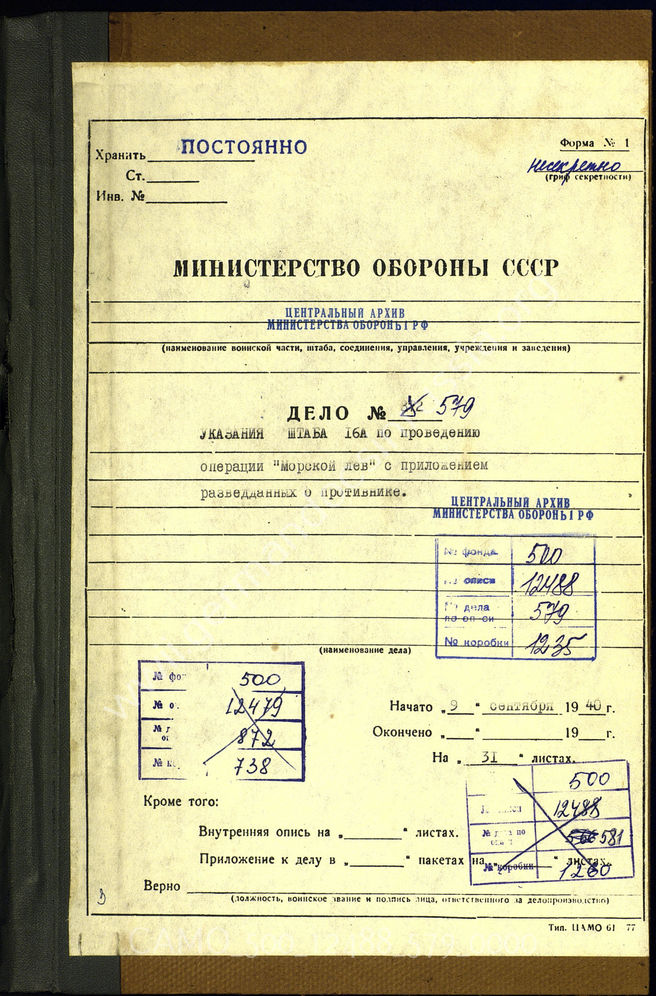 Хранить ПОСТОЯННО
Ст.
Инв. №
Форма № 1
несекретно
(гриф секретности)
МИНИСТЕРСТВО ОБОРОНЫ СССР
ЦЕНТРАЛЬНЫЙ АРХИВ
МИНИСТЕРСТВА ОБОРОНЫ РФ
(наименование воинской части, штаба, соединения, управления, учреждения и заведения)
ДЕЛО № 579
УКАЗАНИЯ ШТАБА 16А по проведению
операции "Морской лев" с приложением
разведданных о противнике.
ЦЕНТРАЛЬНЫЙ АРХИВ
МИНИСТЕРСТВА ОБОРОНЫ РФ
№ фонда 500
описи 12488
№ дела 579
№ коробки 1235
(наименование дела)
№ 500
№ 12479
№ 872
№ 738
Начато „9“ сентября 1940 г.
Окончено „ “ 19 г.
На „31“ листах.
500
12488
№ дела по 581
№ коробки 1260
Кроме того:
Внутренняя опись на „ “ листах.
Приложение к делу в „ “ пакетах на „ “ листах.
Верно
(должность, воинское звание и подпись лица, ответственного за делопроизводство)
Тип. ЦАМО 61 77